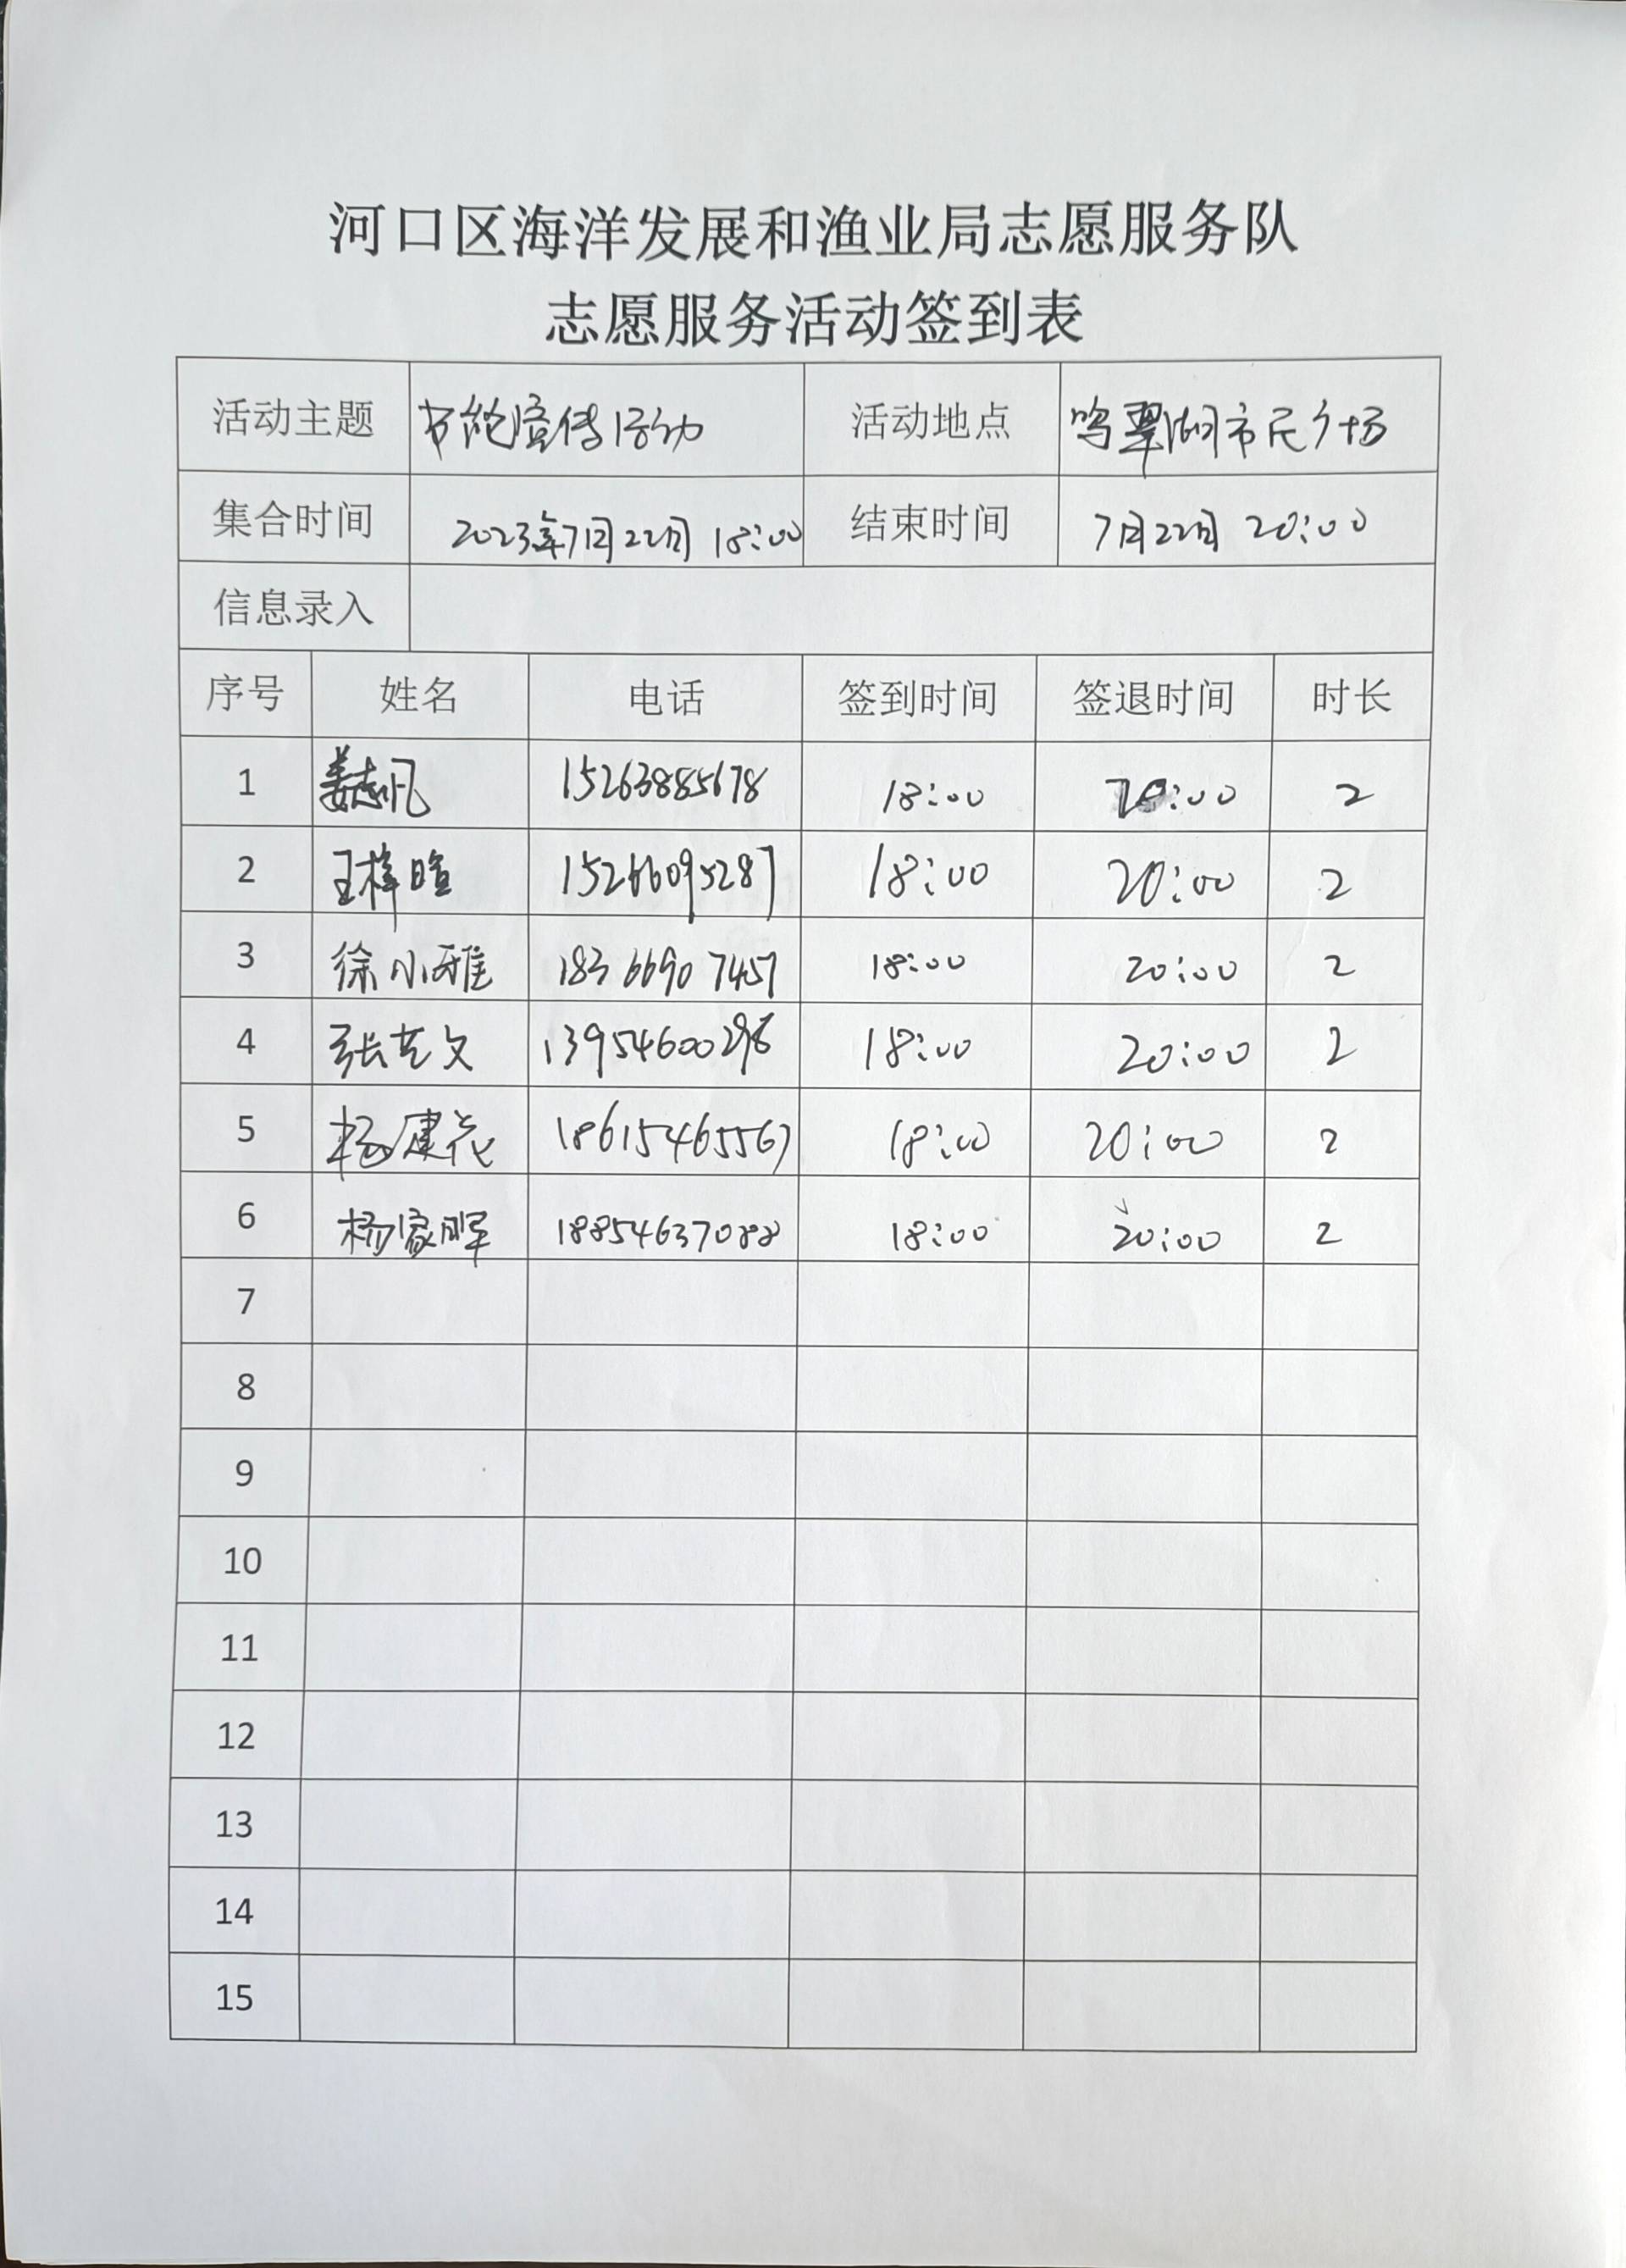 河口区海洋发展和渔业局志愿服务队
志愿服务活动签到表
活动主题 节能宣传活动 活动地点 鸣翠湖市民广场
集合时间 2023年7月22日 18:00 结束时间 7月22日 20:00
信息录入
序号 姓名 电话 签到时间 签退时间 时长
1 姜志凡 15263885678 18:00 20:00 2
2 王梓暄 15266095287 18:00 20:00 2
3 徐小雅 18366907457 18:00 20:00 2
4 张艺文 13954600296 18:00 20:00 2
5 杨建花 18615465567 18:00 20:00 2
6 杨家晖 18854637088 18:00 20:00 2
7
8
9
10
11
12
13
14
15